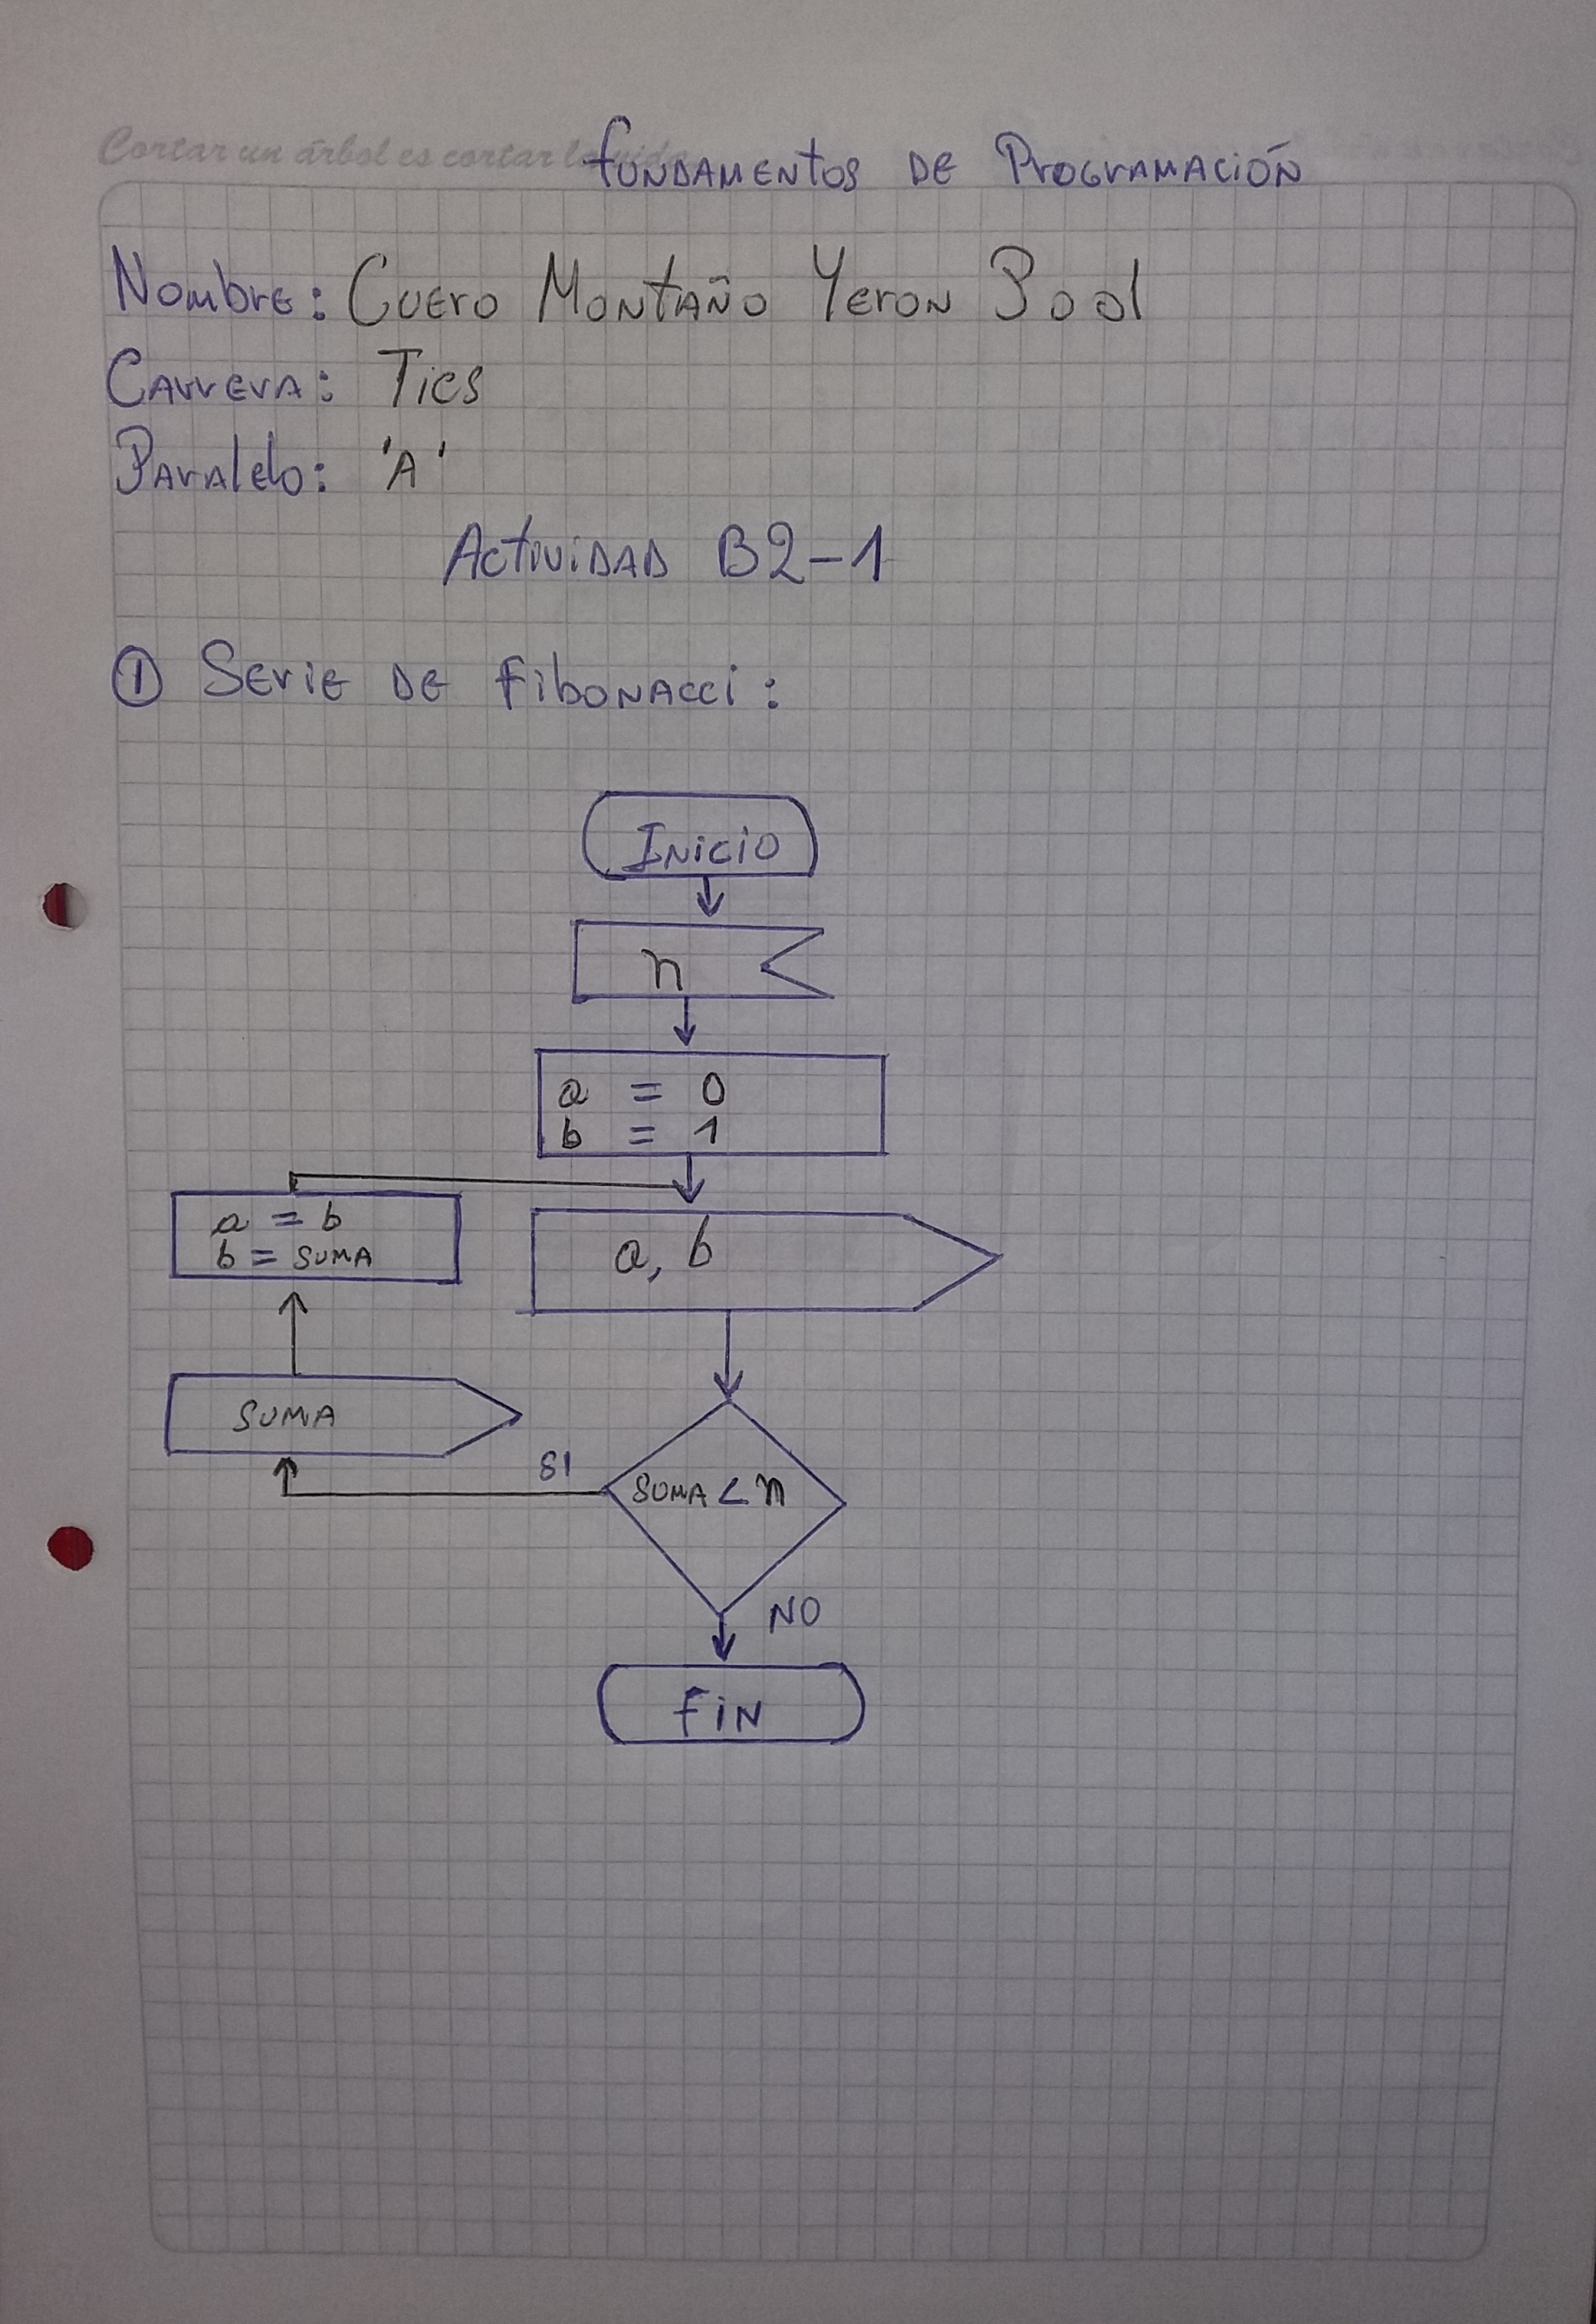 Cortar un árbol es cortar la vida
Fundamentos de Programación
Nombre: Cuero Montaño Yeron Pool
Carrera: Tics
Paralelo: 'A'
Actividad B2-1
① Serie de Fibonacci:
Inicio
n
a = 0
b = 1
a = b
b = suma
a, b
suma
SI
suma < n
NO
Fin